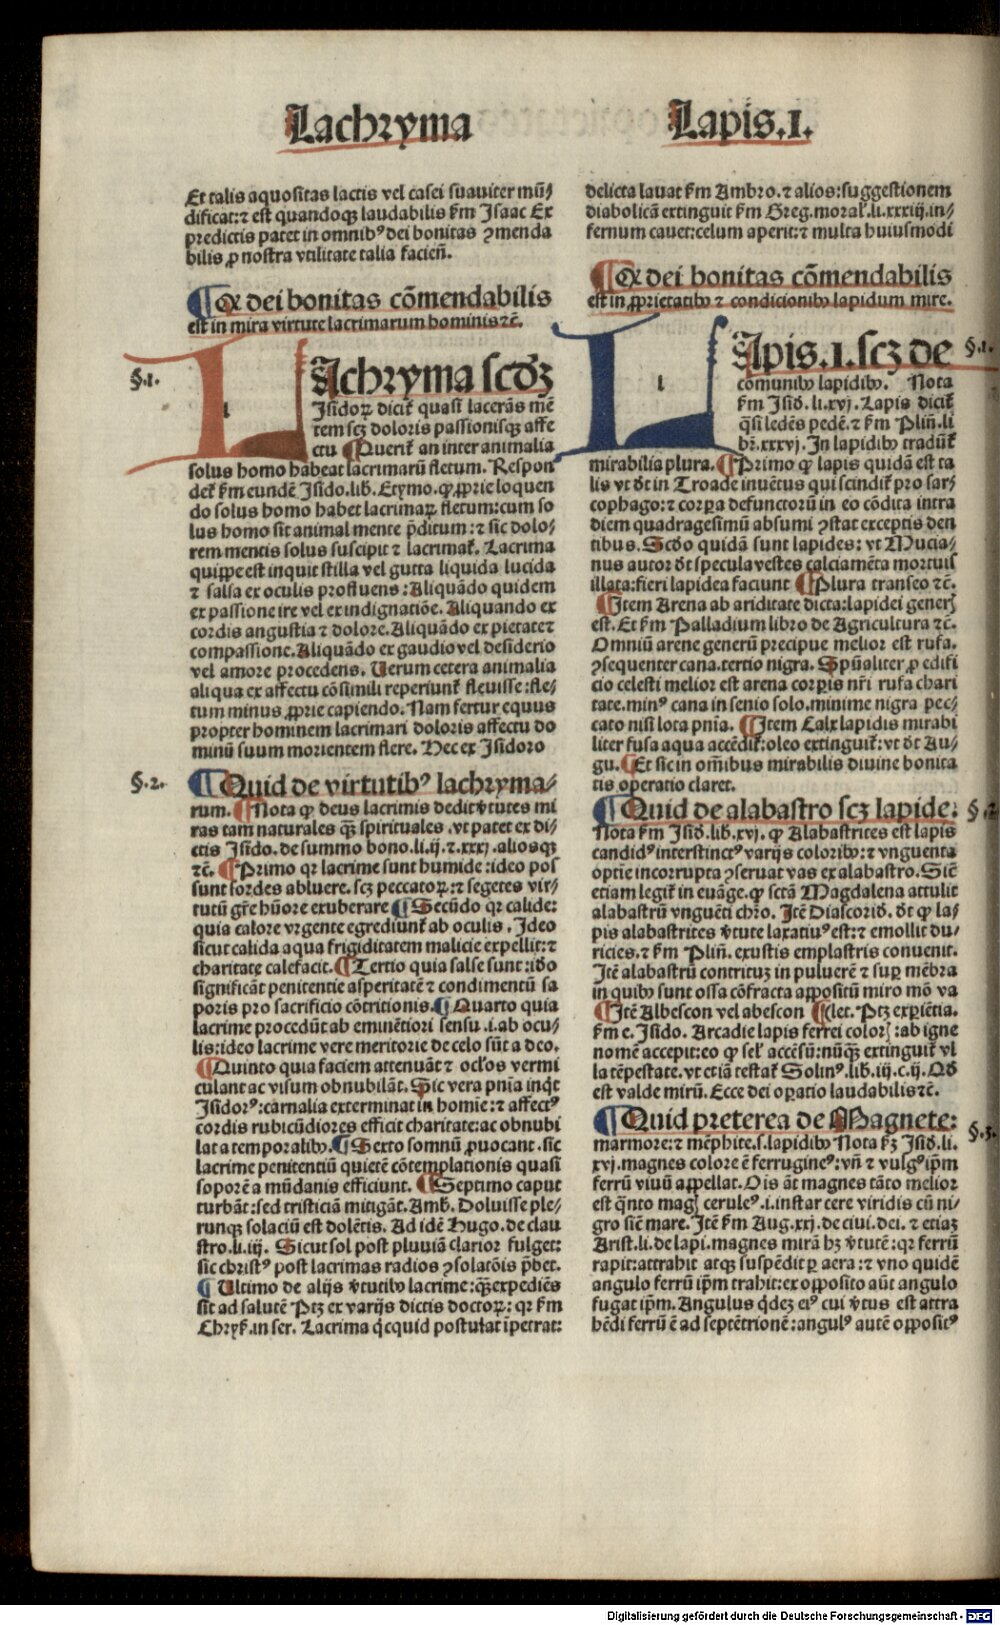 Lachryma
Lapis.I.
Et talis aquositas lactis vel casei suauiter mū/
dificat:⁊ est quandoqꝫ laudabilis ẜm Isaac Ex
predictis patet in omnibꝰ dei bonitas ꝯmenda
bilis ꝓ nostra vtilitate talia facien̄.
¶ Ex dei bonitas cōmendabilis
est in mira virtute lacrimarum hominis ⁊c̄.
§.1.
LAchryma scd̄ꝫ
Isidoꝝ dicit᷑ quasi lacerās mē
tem scꝫ doloris passionisqꝫ affe
ctu ¶ Querit᷑ an inter animalia
solus homo habeat lacrimarū fletum. Respon
det᷑ ẜm eundē Isido.lib. Etymo. ꝙ ꝓprie loquen
do solus homo habet lacrimaꝝ fletum:cum so
lus homo sit animal mente p̄ditum:⁊ sic dolo/
rem mentis solus suscipit ⁊ lacrimat᷑. Lacrima
quippe est inquit stilla vel gutta liquida lucida
⁊ salsa ex oculis profluens:Aliquādo quidem
ex passione ire vel ex indignatiōe. Aliquando ex
cordis angustia ⁊ dolore. Aliquādo ex pietate ⁊
compassione. Aliquādo ex gaudio vel desiderio
vel amore procedens. Uerum cetera animalia
aliqua ex affectu cōsimili reperiunt᷑ fleuisse:fle/
tum minus ꝓprie capiendo. Nam fertur equus
propter hominem lacrimari doloris affectu do
minū suum morientem flere. Hec ex Isidoro
§.2.
¶ Quid de virtutibꝰ lachryma/
rum. ¶ Nota ꝙ deus lacrimis dedit v̄tutes mi
ras tam naturales qȝ̄ spirituales. vt patet ex di/
ctis Isido. de summo bono.li.ij.⁊.xxxj.aliosqꝫ
⁊c̄. ¶ Primo qꝛ lacrime sunt humide:ideo pos
sunt sordes abluere. scꝫ peccatoꝝ:⁊ segetes vir/
tutū gr̄e hūore exuberare ¶ Secūdo qꝛ calide:
quia calore vrgente egrediunt᷑ ab oculis. Ideo
sicut calida aqua frigiditatem malicie expellit:⁊
charitate calefacit. ¶ Tertio quia salse sunt:iđo
significāt penitentie asperitatē ⁊ condimentū sa
poris pro sacrificio cōtritionis. ¶ Quarto quia
lacrime procedūt ab eminētiori sensu.i.ab ocu/
lis:ideo lacrime vere meritorie de celo sūt a deo.
¶ Quinto quia faciem attenuāt ⁊ ocl̄os vermi
culant ac visum obnubilāt. Sic vera pnīa inq̄t
Isidorꝰ:carnalia exterminat in homīe:⁊ affectꝰ
cordis rubicūdiores efficit charitate:ac obnubi
lat a temporalibꝰ. ¶ Sexto somnū ꝓuocant. sic
lacrime penitentiū quietē cōtemplationis quasi
soporē a mūdanis efficiunt. ¶ Septimo caput
turbāt:sed tristiciā mitigāt. Amb. Doluisse ple/
runqꝫ solaciū est dolētis. Ad idē Hugo.de clau
stro.li.iij. Sicut sol post pluuiā clarior fulget:
sic christꝰ post lacrimas radios ꝯsolatōis p̄bet.
¶ Ultimo de alijs v̄tutibꝰ lacrime:qȝ̄ expediēs
sit ad salutē Ptꝫ ex varijs dictis doctoꝝ: qꝛ ẜm
Chrys̄.in ser. Lacrima q̄cquid postulat īpetrat:
delicta lauat ẜm Ambro.⁊ alios:suggestionem
diabolicā extinguit ẜm Greg.moral̄.li.xxxiij.in/
fernum cauet:celum aperit:⁊ multa huiusmodi
¶ Ex dei bonitas cōmendabilis
est in ꝓprietatibꝰ ⁊ condicionibꝰ lapidum mire.
§.1.
LApis.I.scꝫ de
cōmunibꝰ lapidibꝰ. Nota
ẜm Isid̄.li.xvj. Lapis dicit᷑
q̄si ledēs pedē.⁊ ẜm Plin̄.li
br̄.xxxvj. In lapidibꝰ tradūt᷑
mirabilia plura. ¶ Primo ꝙ lapis quidā est ta
lis vt d̄t in Troade inuētus qui scindit᷑ pro sar/
cophago:⁊ corꝑa defunctorū in eo cōdita intra
diem quadragesimū absumi ꝯstat exceptis den
tibus. Scd̄o quidā sunt lapides: vt Mucia/
nus autor d̄t specula vestes calciamēta mortuis
illata:fieri lapidea faciunt ¶ Plura transeo ⁊c̄.
¶ Item Arena ab ariditate dicta:lapidei generꝭ
est. Et ẜm Palladium libro de Agricultura ⁊c̄.
Omniū arene generū precipue melior est rufa.
ꝯsequenter cana.tertio nigra. Spūaliter ꝓ edifi
cio celesti melior est arena corꝑis nr̄i rufa chari
tate.minꝰ cana in senio solo.minime nigra pec/
cato nisi lota pnīa. ¶ Item Calx lapidis mirabi
liter fusa aqua accēdit᷑:oleo extinguit᷑:vt d̄t Au/
gu. ¶ Et sic in om̄ibus mirabilis diuine bonita
tis operatio claret.
§.2.
¶ Quid de alabastro scꝫ lapide:
Nota ẜm Isid̄.lib.xvj. ꝙ Alabastrites est lapis
candidꝰ interstinctꝰ varijs coloribꝰ:⁊ vnguenta
optie incorrupta ꝯseruat vas ex alabastro. Sic̄
etiam legit᷑ in euāge. ꝙ sctā Magdalena attulit
alabastrū vnguēti chr̄o. Itē Diascorid̄. d̄t ꝙ la/
pis alabastrites v̄tute laxatiuꝰ est:⁊ emollit du/
ricies.⁊ ẜm Plin̄. exustis emplastris conuenit.
Itē alabastrū contrituꝫ in puluerē ⁊ suꝑ mēbra
in quibꝰ sunt ossa cōfracta appositū miro mō va
¶ Itē Albescon vel abescon ¶ let. Ptꝫ exꝑiētia.
ẜm e. Isido. Arcadie lapis ferrei colorꝭ:ab igne
nomē accepit:eo ꝙ sel̄ accēsū:nūqȝ̄ extinguit᷑ vl̄
la tēpestate.vt etiā testat᷑ Solinꝰ.lib.iij.c.ij. Qd̄
est valde mirū. Ecce dei oꝑatio laudabilis ⁊c̄.
§.3.
¶ Quid preterea de Magnete:
marmore:⁊ mēphite.s.lapidibꝰ Nota ẜꝫ Isid̄.li.
xvj.magnes colore ē ferrugineꝰ:vn̄ ⁊ vulgꝰ ip̄m
ferrū viuū appellat. Ois āt magnes tāto melior
est q̄nto magꝭ ceruleꝰ.i.instar cere viridis cū ni/
gro sic̄ mare. Itē ẜm Aug.xxj.de ciui.dei. ⁊ etiaꝫ
Arist.li.de lapi.magnes mirā hꝫ v̄tutē:qꝛ ferrū
rapit:attrahit atqꝫ suspēdit ꝑ aera:⁊ vno quidē
angulo ferrū ip̄m trahit:ex opposito aūt angulo
fugat ip̄m. Angulus q̄deꝫ eiꝰ cui v̄tus est attra
hēdi ferrū ē ad septētrionē:angulꝰ autē oppositꝰ
Digitalisierung gefördert durch die Deutsche Forschungsgemeinschaft - DFG